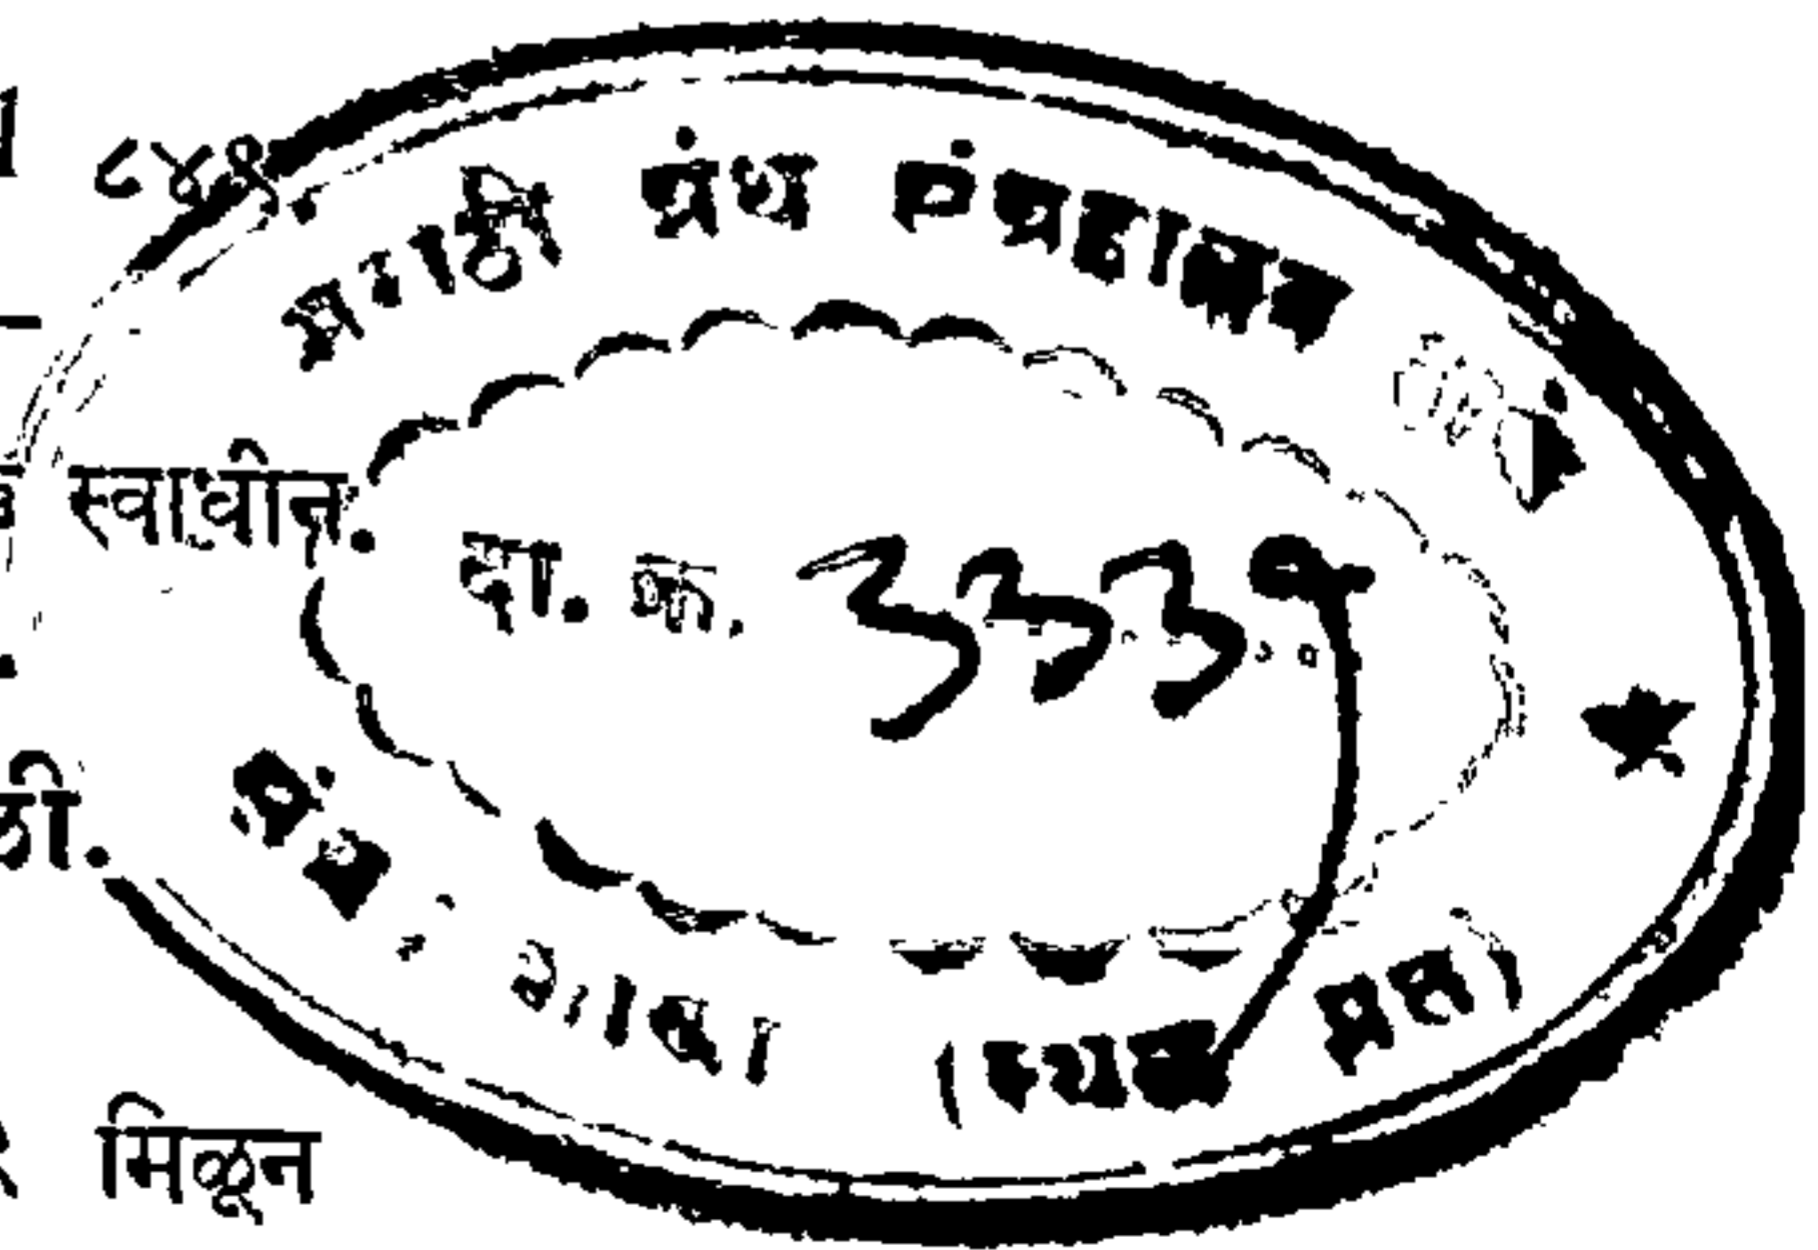 ८४९
मराठी ग्रंथ संग्रहालय
स्वाधीन.
दा. क्र. ३३३१
ळी.
शाखा (स्थळ प्रत)
मिळून